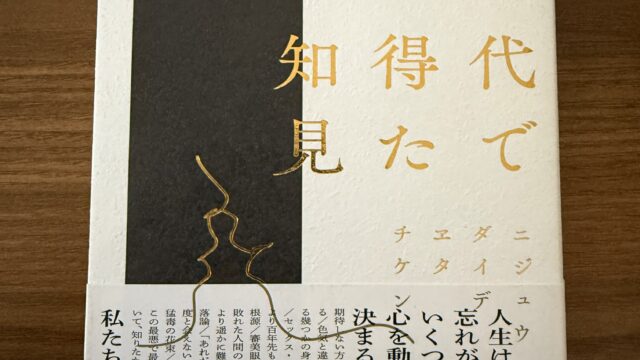 代で
得た
知見
ニジュウ
ダイデ
ヱタ
チケン
人生は
忘れが
いくつ
心を動
決まる
期待しない方
る/色気と違
る幾つかの身
/セックス・
より百年先も
根源/審美眼
敗れた人間の
より遥かに難
落論/「あれが
度と会えない
猛毒の花束
この最悪で最
いて、知りた
私たち